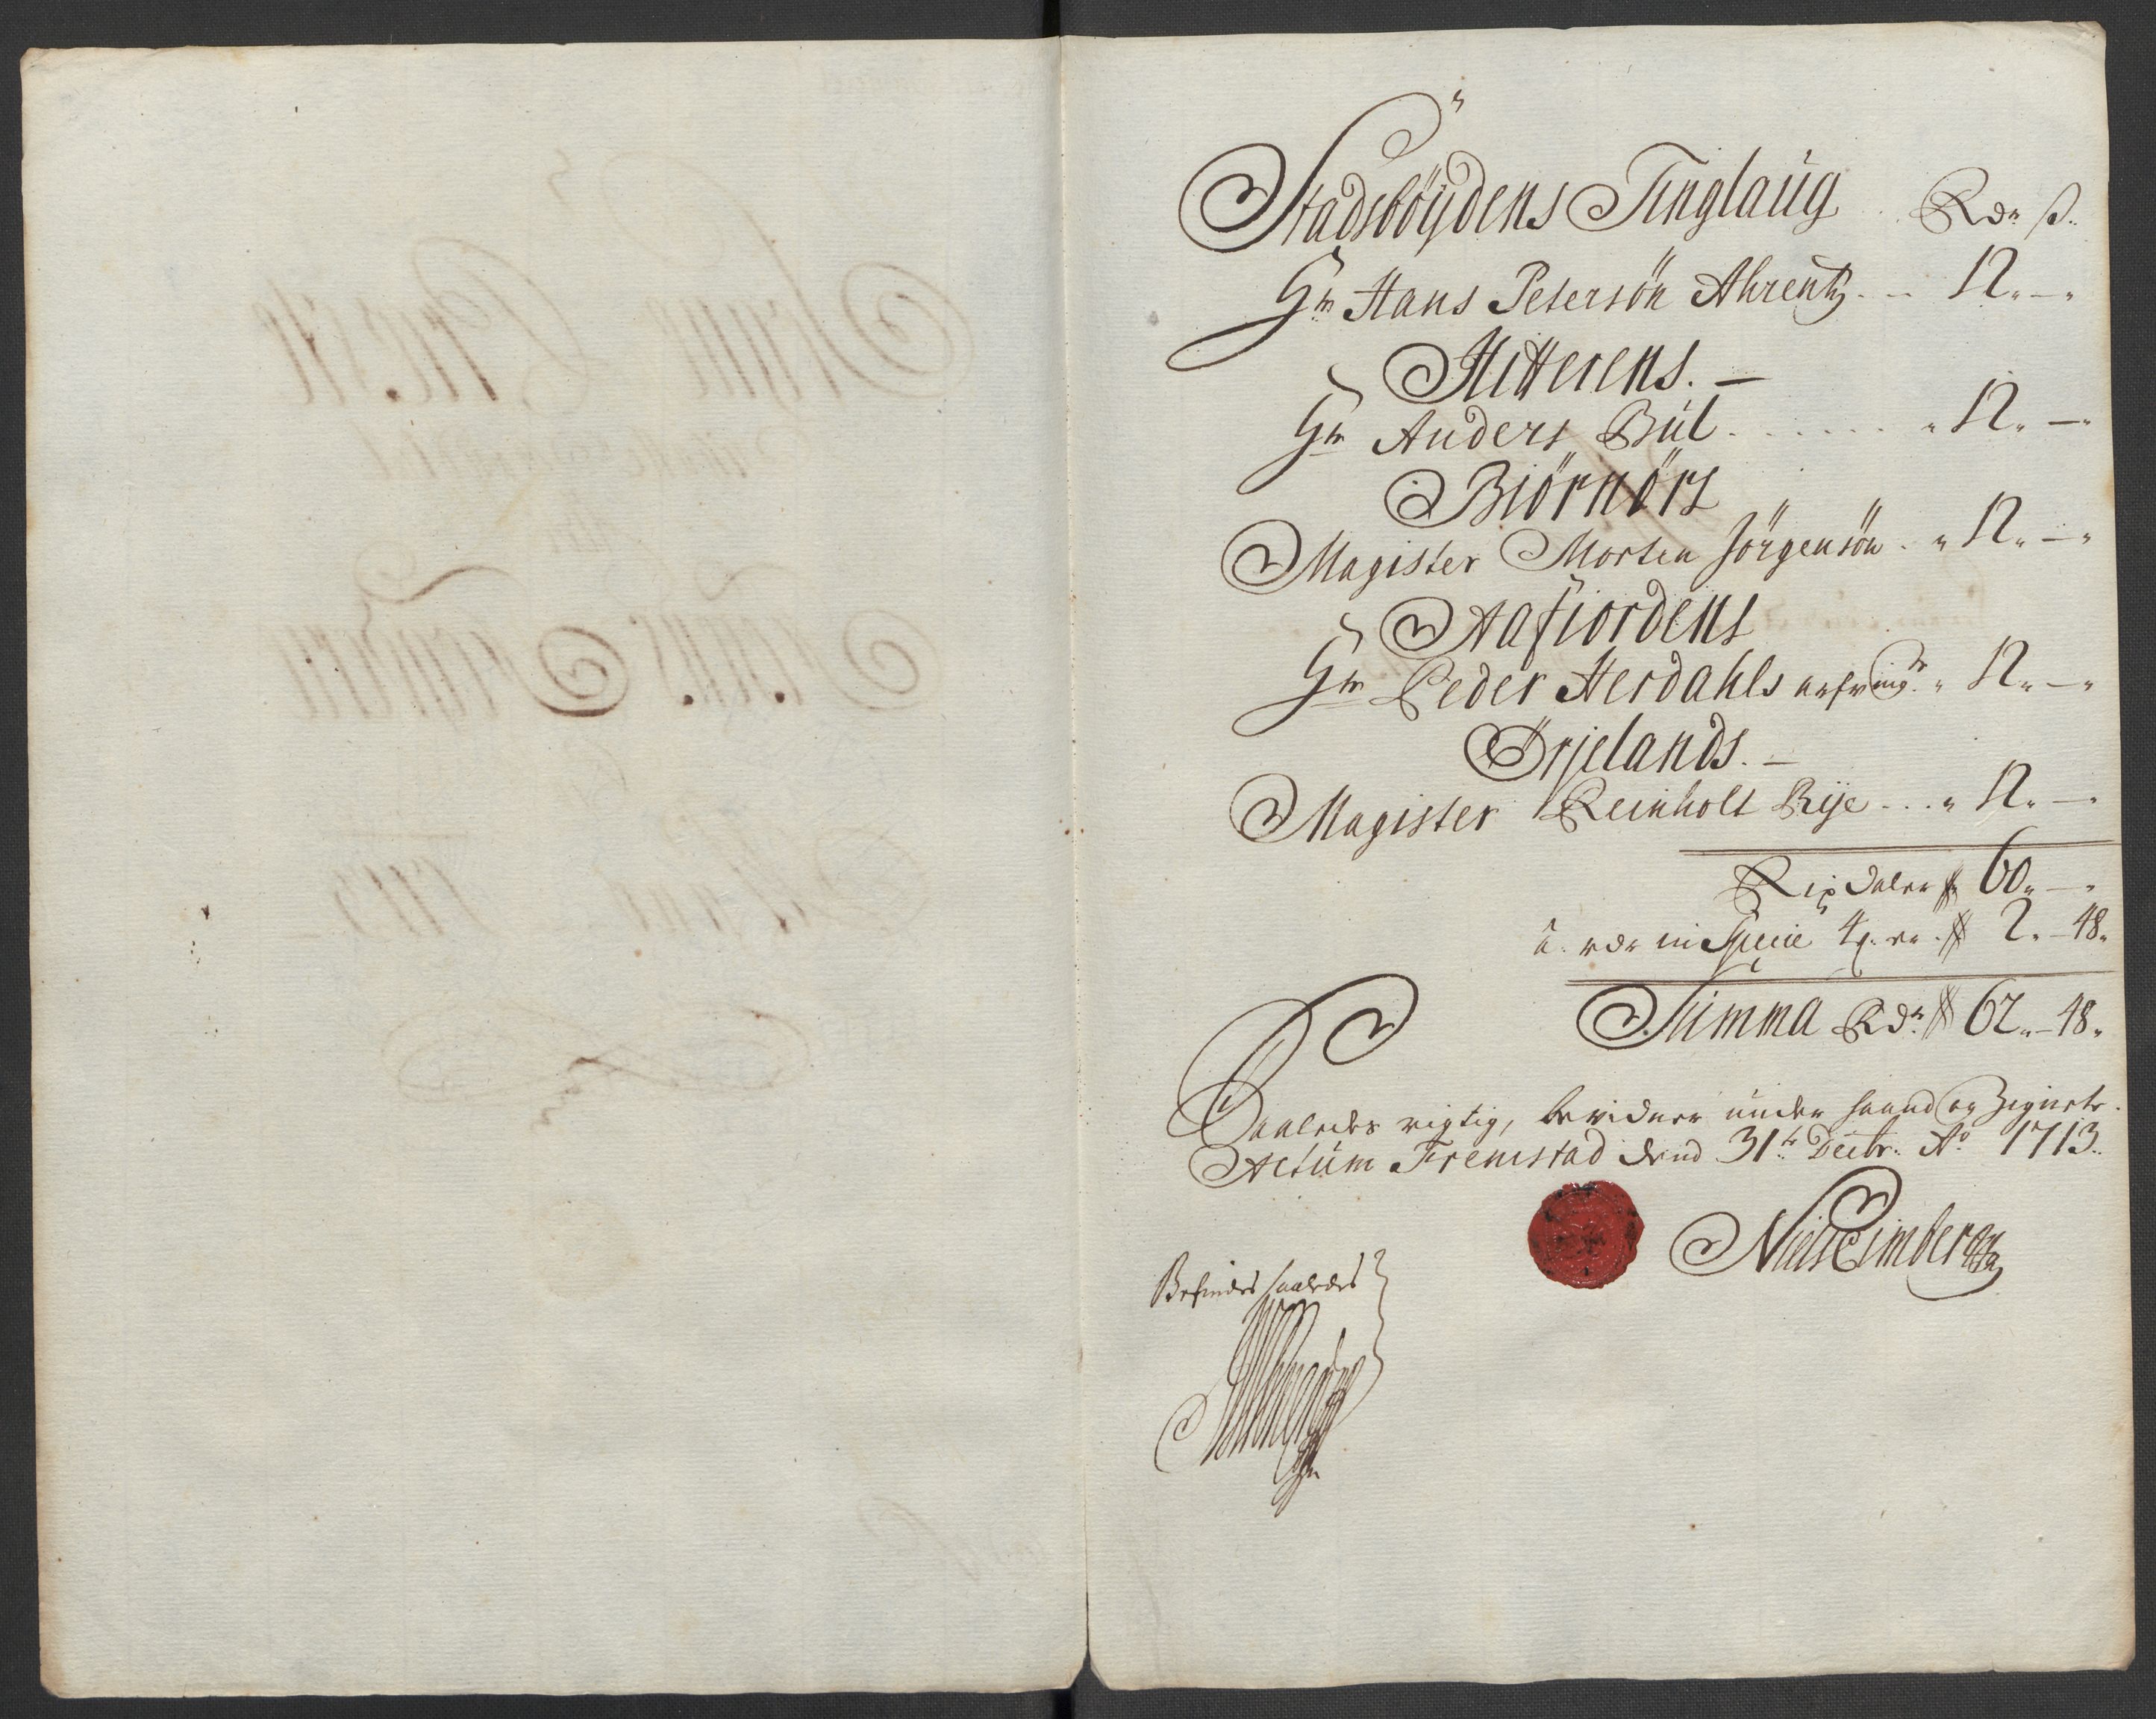 Stadsböÿdens Tinglaúg Rdr ß
Hr Hans Petersön Ahrentz 12 -
Hitterens. -
Hr Anders Búl 12 -
Biörnörs
Magister Morten Jörgensön 12 -
Aafiordens
Hr Peder Herdahls arfving 12 -
Örjelands. -
Magister Reinholt Rije 12 -
Rixdaler 60 -
a rdr in Specie 4 2 - 48
Summa Rdr 62 - 48
Saaledes rigtig, bevidner under haand og Zignete.
Actúm Fremstad dend 31te Decbr: Ao 1713
Niels Cimberg
Befindes saaledes